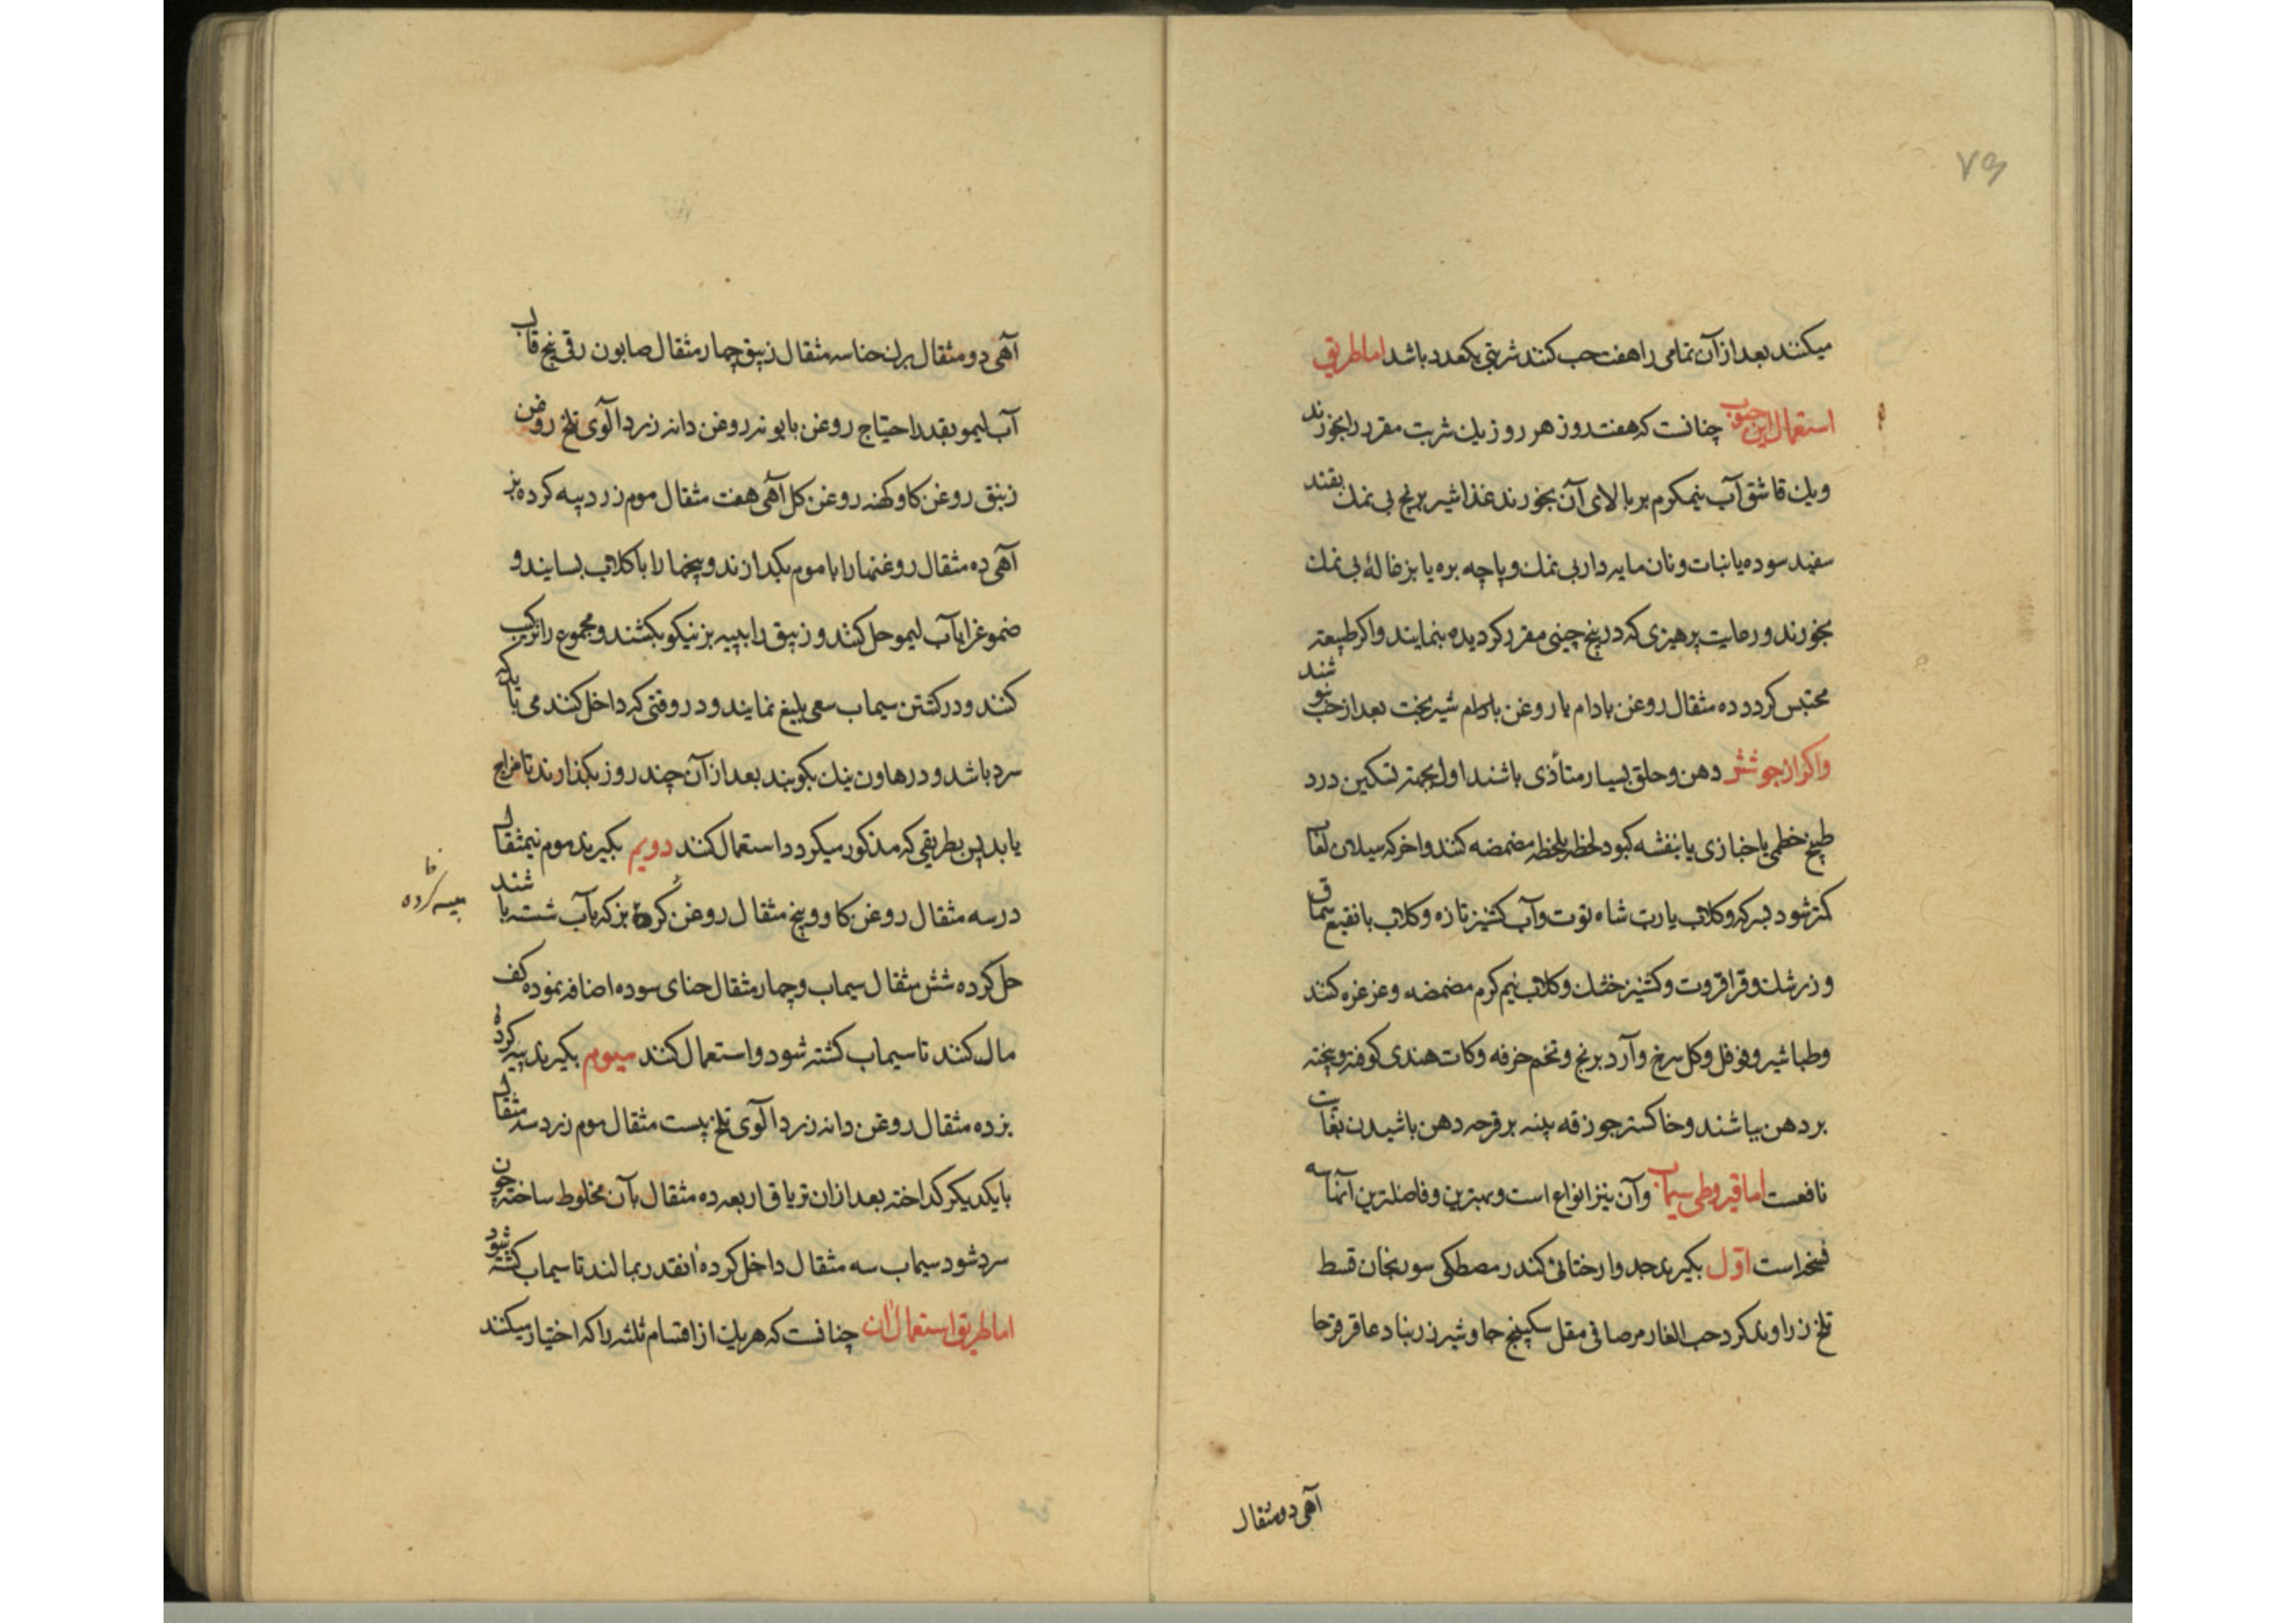 ۷۵
میکنند بعد از آن تمامی را هفت حب کنند شربتی یکعدد باشد اما طریق
استعمال این حبوب چنانست که هفت روز هر روز یک شربت مقرر را بخورند
و یک قاشق آب نیمکرم بر بالای آن بخورند غذا شیر برنج بی نمک بقند
سفید سوده یا نبات و نان مایه دار بی نمک و پاچه بره یا بزغالهٔ بی نمک
بخورند و رعایت پرهیزی که در بیخ چینی مقرر کردیده بنمایند و اکر طبیعت
محتبس کردد ده مثقال روغن بادام یا روغن بادام شیر بخت بعد از حب بنوشند
واکر از جوشش دهن و حلق بسیار متأذی باشند اول بجهته تسکین درد
طبیخ خطمی یا خبازی یا بنفشه کبود لحظه بلحظه مضمضه کنند و آخر که سیلان لعاب
کمتر شود بسرکه و کلاب یا رب شاه توت و آب کشنیز تازه و کلاب با نقیع سماق
و زرشک و قراقروت و کشنیز خشک و کلاب نیم کرم مضمضه و غرغره کنند
و طباشیر و فوفل و کل سرخ و آرد برنج و تخم خرفه و کات هندی کوفته و بیخته
بر دهن بپاشند و خاکستر جوزقه پنبه بر قرحه دهن پاشیدن بغایت
نافعست اما قیروطی سیماب وآن نیز انواع است و بهترین و فاضلترین آنها سه
نسخه است اول بکیرند جدوار ختائی کندر مصطکی سورنجان قسط
تلخ زراوند کرد حب الغار مر صافی مقل سکبینج جاوشیر زرنباد عاقرقرحا
آهی دو مثقال
آهی دو مثقال برک حنا سه مثقال زیبق چهار مثقال صابون رقی پنج مثقال
آب لیمو بقدر احتیاج روغن بابونه روغن دانه زردآلوی تلخ روغن
زنبق روغن کاو کهنه روغن کل آهی هفت مثقال موم زرد پیه کرده بز
آهی ده مثقال روغنها را با موم بکدازند و بیخها را با کلاب بسایند و
صموغ را با آب لیمو حل کنند و زیبق را با پیه بز نیکو بکشند و مجموع را ترکیب
کنند و در کشتن سیماب سعی بلیغ نمایند و در وقتی که داخل کنند می باید که
سرد باشد و در هاون نیک بکوبند بعد از آن چند روز بکذارند تا مزاج
یابد پس بطریقی که مذکور میکردد استعمال کنند دویم بکیرند موم نیمثقال
در سه مثقال روغن کاو و پنج مثقال روغن کرده بز که بآب شسته باشند
پیه کرده
حل کرده شش مثقال سیماب و چهار مثقال حنای سوده اضافه نموده کف
مال کنند تا سیماب کشته شود و استعمال کنند سیوم بکیرند پیه کرده
بز ده مثقال روغن دانه زردآلوی تلخ بیست مثقال موم زرد سه مثقال
بایکدیکر کداخته بعد از ان تریاق اربعه ده مثقال بآن مخلوط ساخته چون
سرد شود سیماب سه مثقال داخل کرده آنقدر بمالند تا سیماب کشته شود
اما طریق استعمال آن چنانست که هر یک از اقسام ثلثه را که اختیار میکنند